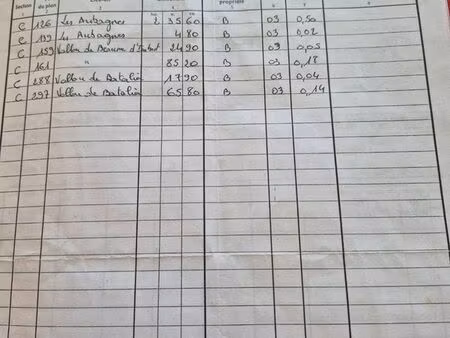 Section du plan propriété
1 2 3 4 5 6 7 8
C 126 Les Aubagnes 2 35 60 B 03 0,50
C 139 Les Aubagnes 4 80 B 03 0,02
C 159 Vallon de 24 90 B 03 0,05
C 161 " 85 20 B 03 0,18
C 288 Vallon de Batalin 17 90 B 03 0,04
C 297 Vallon de Batalin 65 80 B 03 0,14